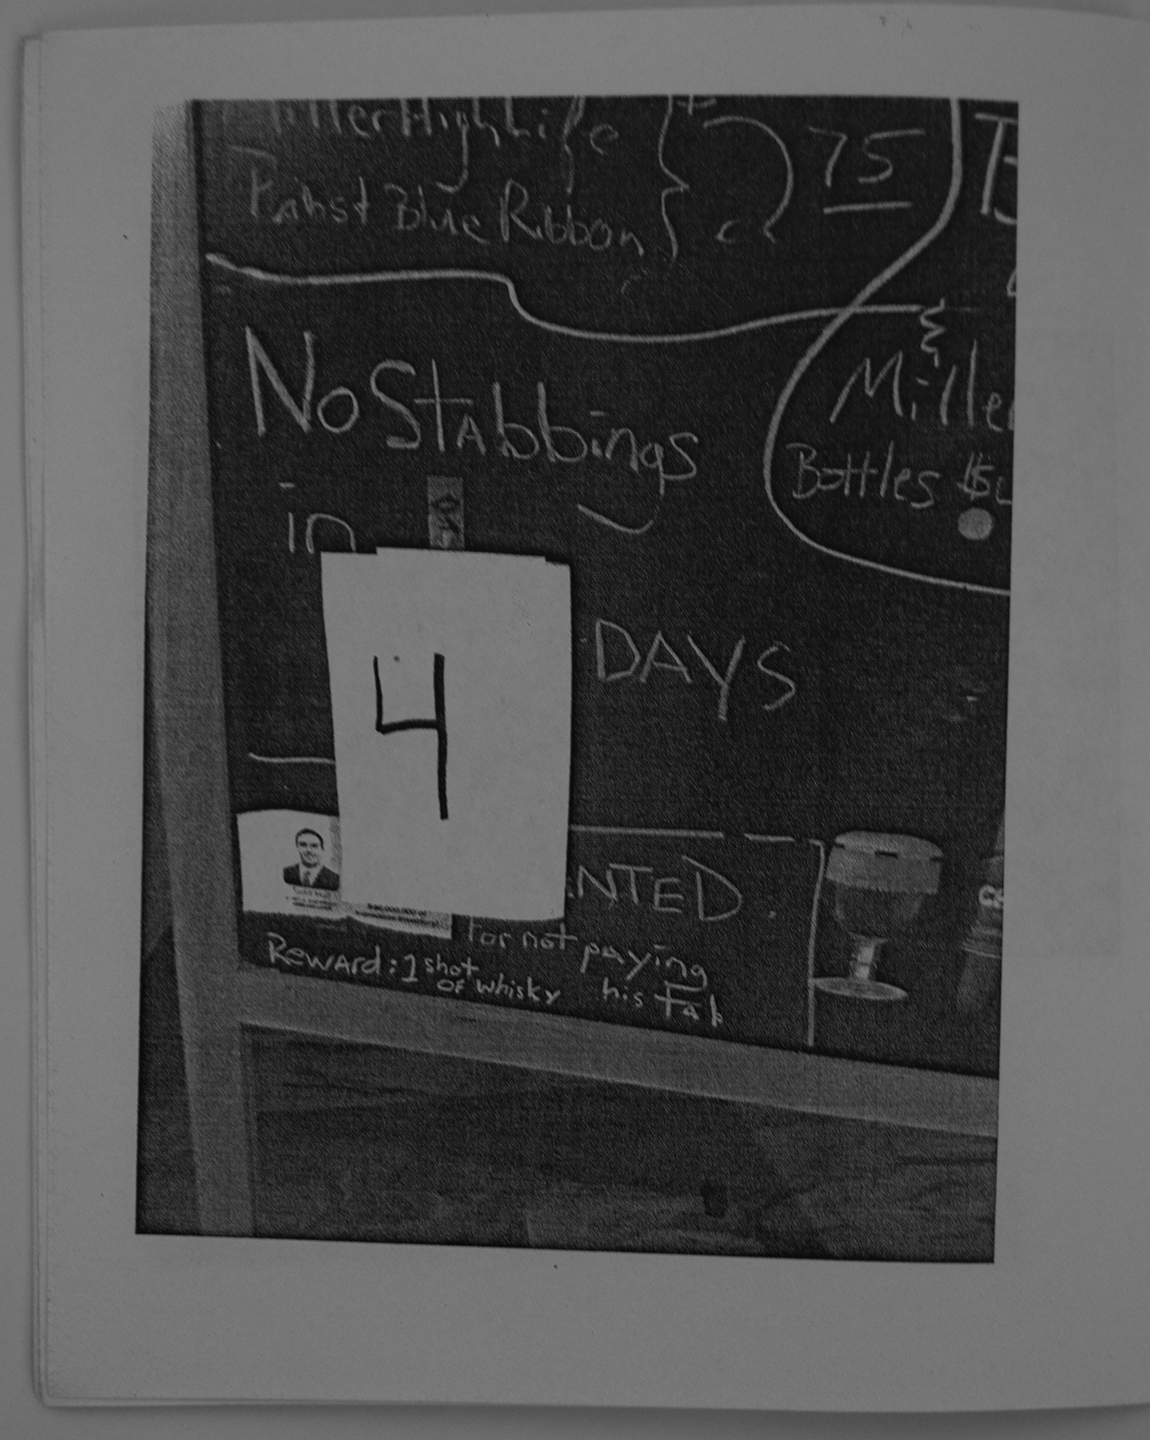 Miller High Life
Pabst Blue Ribbon
75
No Stabbings
in
4
DAYS
&
Miller
Bottles
For not paying
his Tab
Reward: 1 shot
of whisky